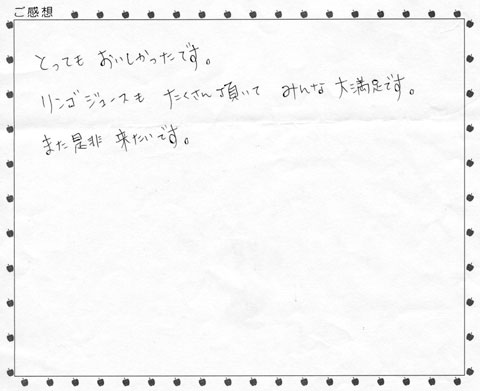 ご感想
とっても おいしかったです。
リンゴジュースも たくさん頂いて みんな 大満足です。
また是非 来たいです。